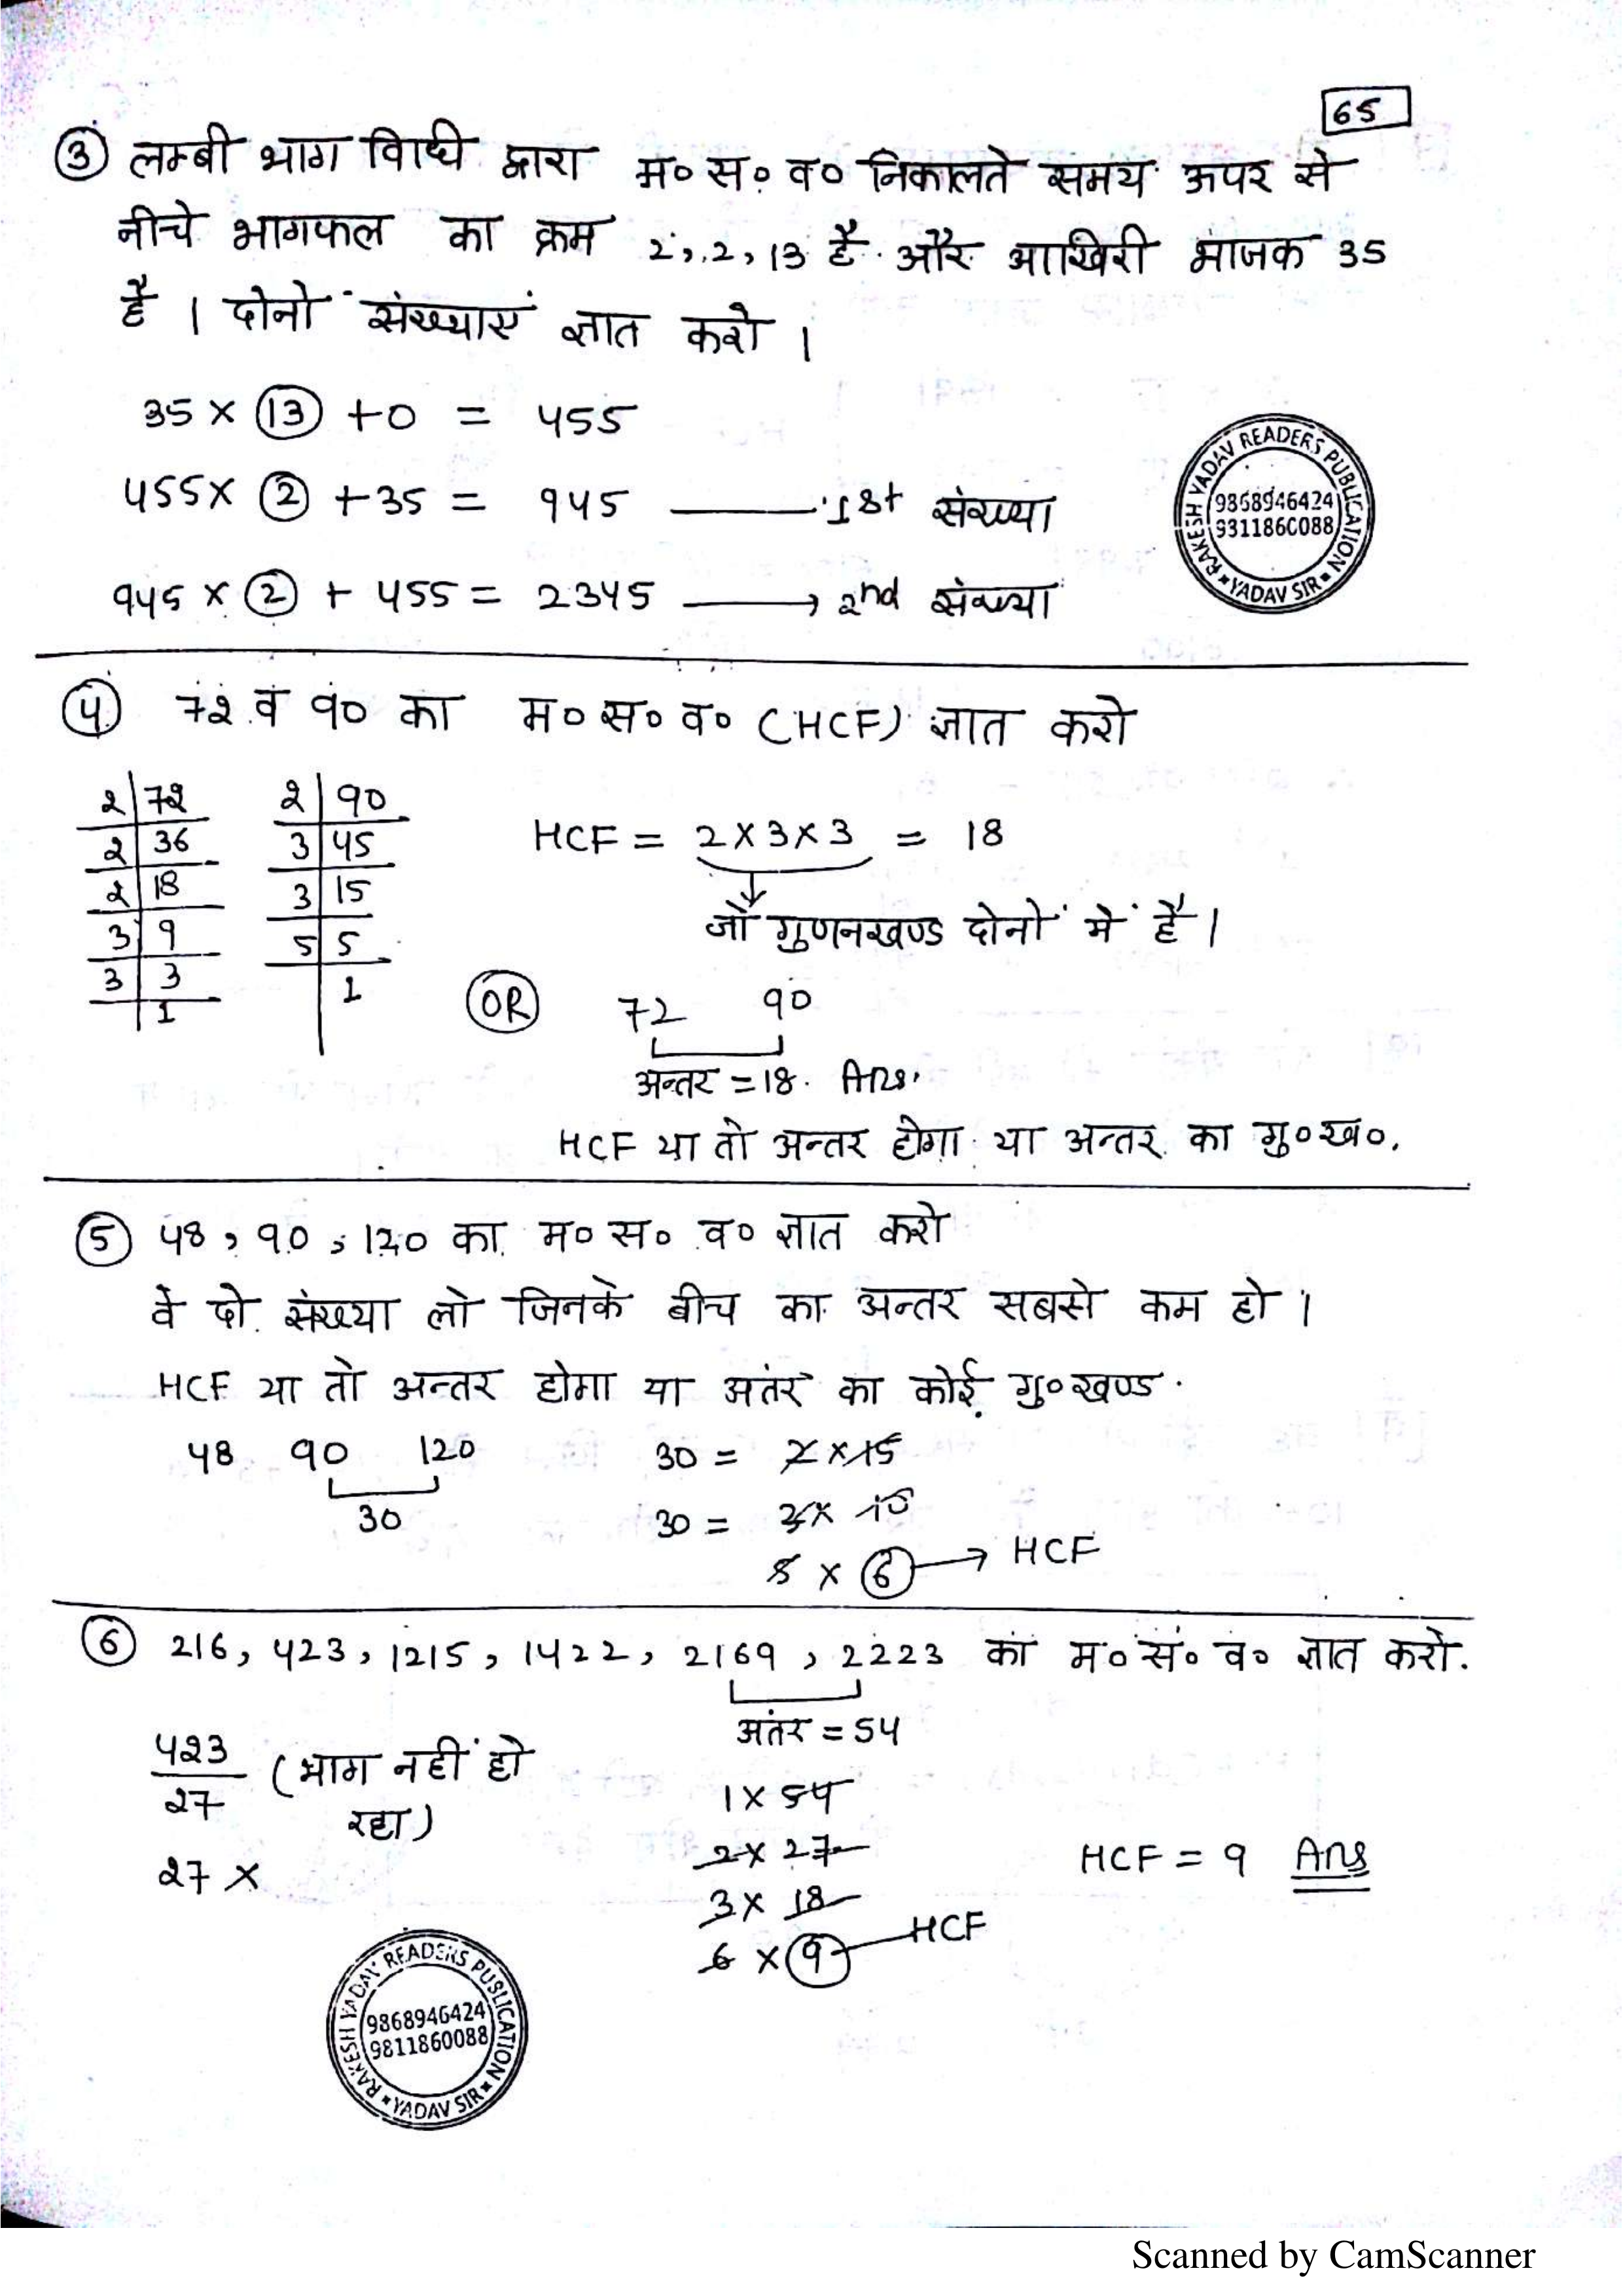 65
③ लम्बी भाग विधि द्वारा म० स० व० निकालते समय ऊपर से
नीचे भागफल का क्रम 2, 2, 13 है और आखिरी भाजक 35
है । दोनो संख्याएं ज्ञात करो ।
35 × 13 + 0 = 455
455 × 2 + 35 = 945 —— 1st संख्या
945 × 2 + 455 = 2345 ——→ 2nd संख्या
RAKESH YADAV READERS PUBLICATION
9868946424
9311860088
YADAV SIR
④ 72 व 90 का म० स० व० (HCF) ज्ञात करो
2 | 72
2 | 36
2 | 18
3 | 9
3 | 3
1
2 | 90
3 | 45
3 | 15
5 | 5
1
HCF = 2 × 3 × 3 = 18
जो गुणनखण्ड दोनों में है ।
OR 72 90
अन्तर = 18. Ans.
HCF या तो अन्तर होगा या अन्तर का गु०ख०.
⑤ 48, 90, 120 का म० स० व० ज्ञात करो
वे दो संख्या लो जिनके बीच का अन्तर सबसे कम हो ।
HCF या तो अन्तर होगा या अतंर का कोई गु०खण्ड.
48 90 120
30
30 = 2 × 15
30 = 3 × 10
5 × 6 → HCF
⑥ 216, 423, 1215, 1422, 2169, 2223 का म० सं० व० ज्ञात करो.
अतंर = 54
423/27 (भाग नहीं हो
रहा)
27 ×
1 × 54
2 × 27
3 × 18
6 × 9 — HCF
HCF = 9 Ans
RAKESH YADAV READERS PUBLICATION
9868946424
9811860088
YADAV SIR
Scanned by CamScanner